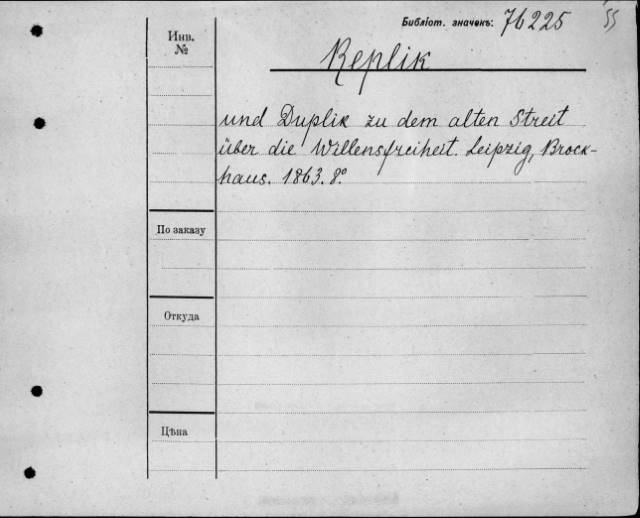 Библіот. значекъ: 76225 55
Инв.
№
Replik
und Duplik zu dem alten Streit
über die Willensfreiheit. Leipzig, Brock-
haus. 1863. 8°.
По заказу
Откуда
Цѣна